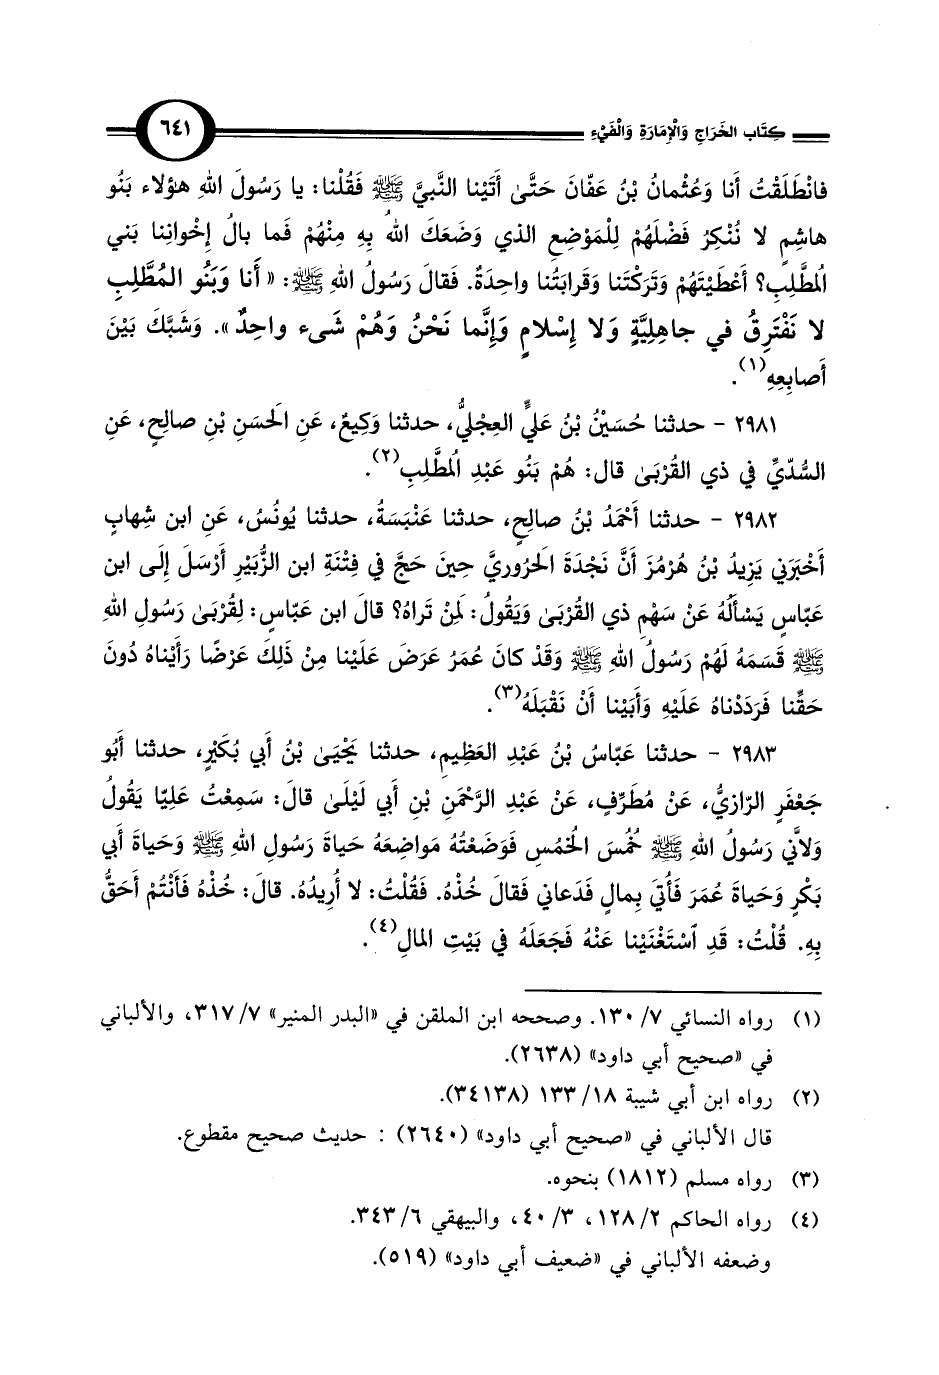 كِتَاب الخَرَاجِ وَالْإِمَارَةِ وَالْفَيْءِ ٦٤١
فانْطَلَقْتُ أَنا وَعُثْمانُ بْنُ عَفّانَ حَتَّىٰ أَتَيْنا النَّبيَّ ﷺ فَقُلْنا: يا رَسُولَ اللهِ هؤلاء بَنُو
هاشِمٍ لا نُنْكِرُ فَضْلَهُمْ لِلْمَوْضِعِ الذي وَضَعَكَ اللهُ بِهِ مِنْهُمْ فَما بالُ إِخْوانِنا بَني
المُطَّلِبِ؟ أَعْطَيْتَهُمْ وَتَرَكْتَنا وَقَرابَتُنا واحِدَةٌ. فَقالَ رَسُولُ اللهِ ﷺ: « أَنا وَبَنُو المُطَّلِبِ
لا نَفْتَرِقُ في جاهِلِيَّةٍ وَلا إِسْلامٍ وَإِنَّما نَحْنُ وَهُمْ شَىء واحِدٌ ». وَشَبَّكَ بَيْنَ
أَصابِعِهِ(١).
٢٩٨١ - حدثنا حُسَيْنُ بْنُ عَليٍّ العِجْليُّ، حدثنا وَكِيعٌ، عَنِ الحَسَنِ بْنِ صالِحٍ، عَنِ
السُّدّيِّ في ذي القُرْبَىٰ قال: هُمْ بَنُو عَبْدِ المُطَّلِبِ(٢).
٢٩٨٢ - حدثنا أَحْمَدُ بْنُ صالِحٍ، حدثنا عَنْبَسَةُ، حدثنا يُونُسُ، عَنِ ابن شِهابٍ
أَخْبَرَني يَزِيدُ بْنُ هُرْمُزَ أَنَّ نَجْدَةَ الحَرُوريَّ حِينَ حَجَّ في فِتْنَةِ ابن الزُّبَيْرِ أَرْسَلَ إِلَى ابن
عَبّاسٍ يَسْأَلُهُ عَنْ سَهْمِ ذي القُرْبَىٰ وَيَقُولُ: لِمَنْ تَراهُ؟ قالَ ابن عَبّاسٍ: لِقُرْبَىٰ رَسُولِ اللهِ
ﷺ قَسَمَهُ لَهُمْ رَسُولُ اللهِ ﷺ وَقَدْ كانَ عُمَرُ عَرَضَ عَلَيْنا مِنْ ذَلِكَ عَرْضًا رَأَيْناهُ دُونَ
حَقِّنا فَرَدَدْناهُ عَلَيْهِ وَأَبَيْنا أَنْ نَقْبَلَهُ(٣).
٢٩٨٣ - حدثنا عَبّاسُ بْنُ عَبْدِ العَظِيمِ، حدثنا يَحْيَىٰ بْنُ أَبي بُكَيْرٍ، حدثنا أَبُو
جَعْفَرٍ الرّازيُّ، عَنْ مُطَرِّفٍ، عَنْ عَبْدِ الرَّحْمَنِ بْنِ أَبي لَيْلَىٰ قالَ: سَمِعْتُ عَلِيّا يَقُولُ
وَلاّني رَسُولُ اللهِ ﷺ خُمُسَ الخُمُسِ فَوَضَعْتُهُ مَواضِعَهُ حَياةَ رَسُولِ اللهِ ﷺ وَحَياةَ أَبي
بَكْرٍ وَحَياةَ عُمَرَ فَأُتيَ بِمالٍ فَدَعاني فَقالَ خُذْهُ. فَقُلْتُ: لا أُرِيدُهُ. قالَ: خُذْهُ فَأَنْتُمْ أَحَقُّ
بِهِ. قُلْتُ: قَدِ ٱسْتَغْنَيْنا عَنْهُ فَجَعَلَهُ في بَيْتِ المالِ(٤).
(١) رواه النسائي ٧/ ١٣٠. وصححه ابن الملقن في «البدر المنير» ٧/ ٣١٧، والألباني
في «صحيح أبي داود» (٢٦٣٨).
(٢) رواه ابن أبي شيبة ١٨/ ١٣٣ (٣٤١٣٨).
قال الألباني في «صحيح أبي داود» (٢٦٤٠) : حديث صحيح مقطوع.
(٣) رواه مسلم (١٨١٢) بنحوه.
(٤) رواه الحاكم ٢/ ١٢٨، ٣/ ٤٠، والبيهقي ٦/ ٣٤٣.
وضعفه الألباني في «ضعيف أبي داود» (٥١٩).